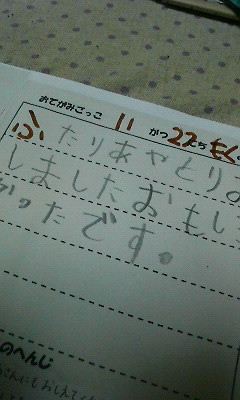 おてがみごっこ 11 がつ 22 にち もく
ふたりあやとりを
しましたおもし
かったです。
のへんじ